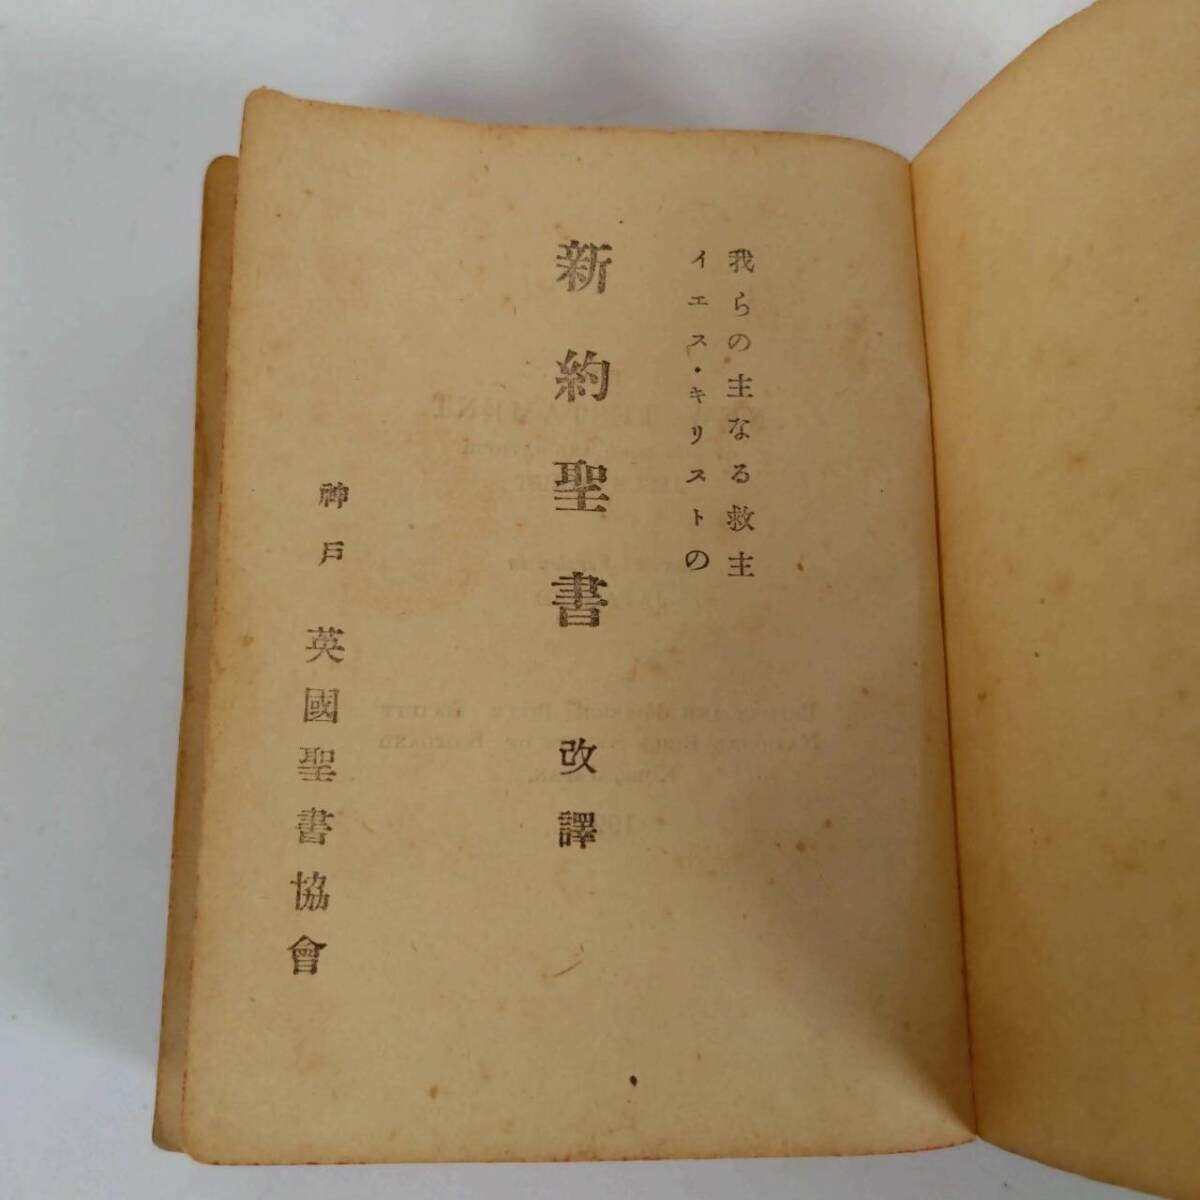 我らの主なる救主
イエス・キリストの
新約聖書 改譯
神戸 英國聖書協會